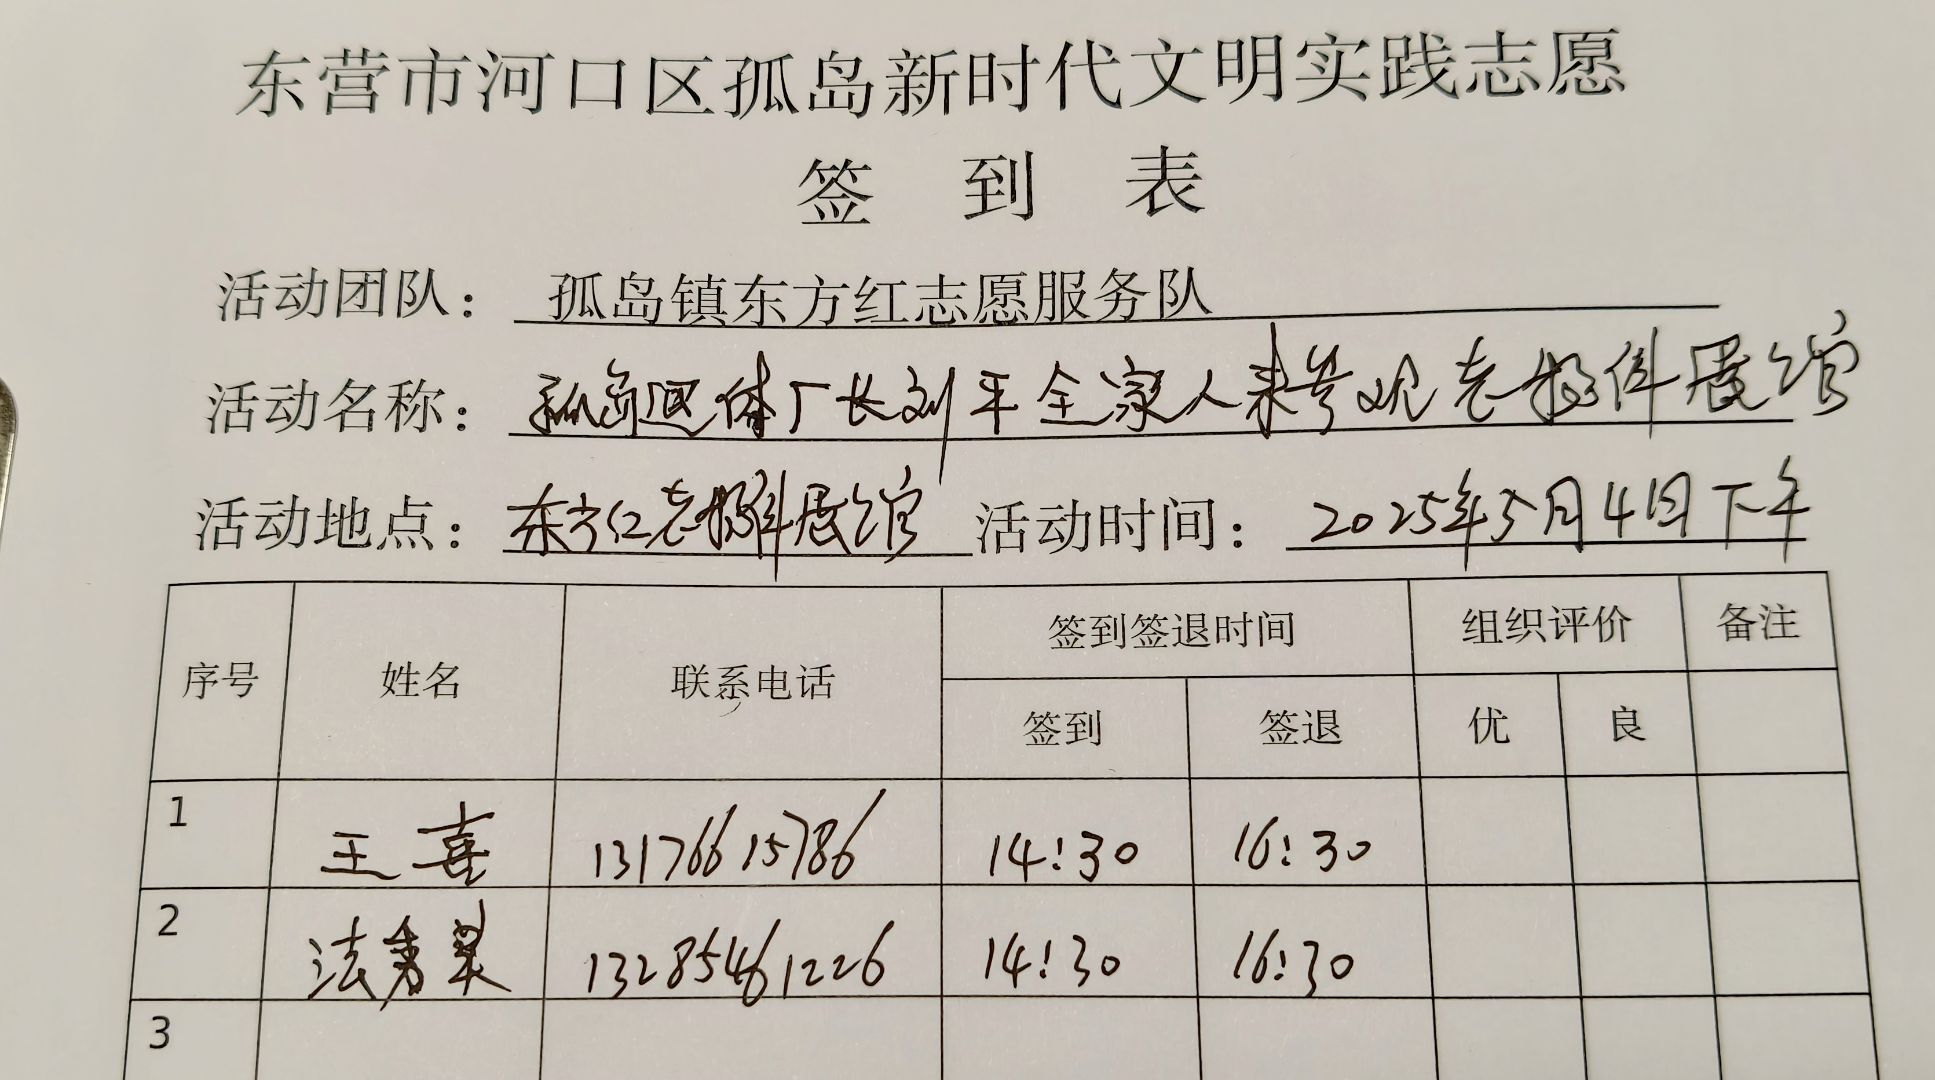 东营市河口区孤岛新时代文明实践志愿
签 到 表
活动团队： 孤岛镇东方红志愿服务队
活动名称： 孤岛 厂长刘平全家人来参观老物件展馆
活动地点： 东方红老物件展馆 活动时间： 2025年5月4日下午
序号 姓名 联系电话 签到签退时间 组织评价 备注
签到 签退 优 良
1 王喜 13176615786 14:30 16:30
2 法秀 13285461226 14:30 16:30
3